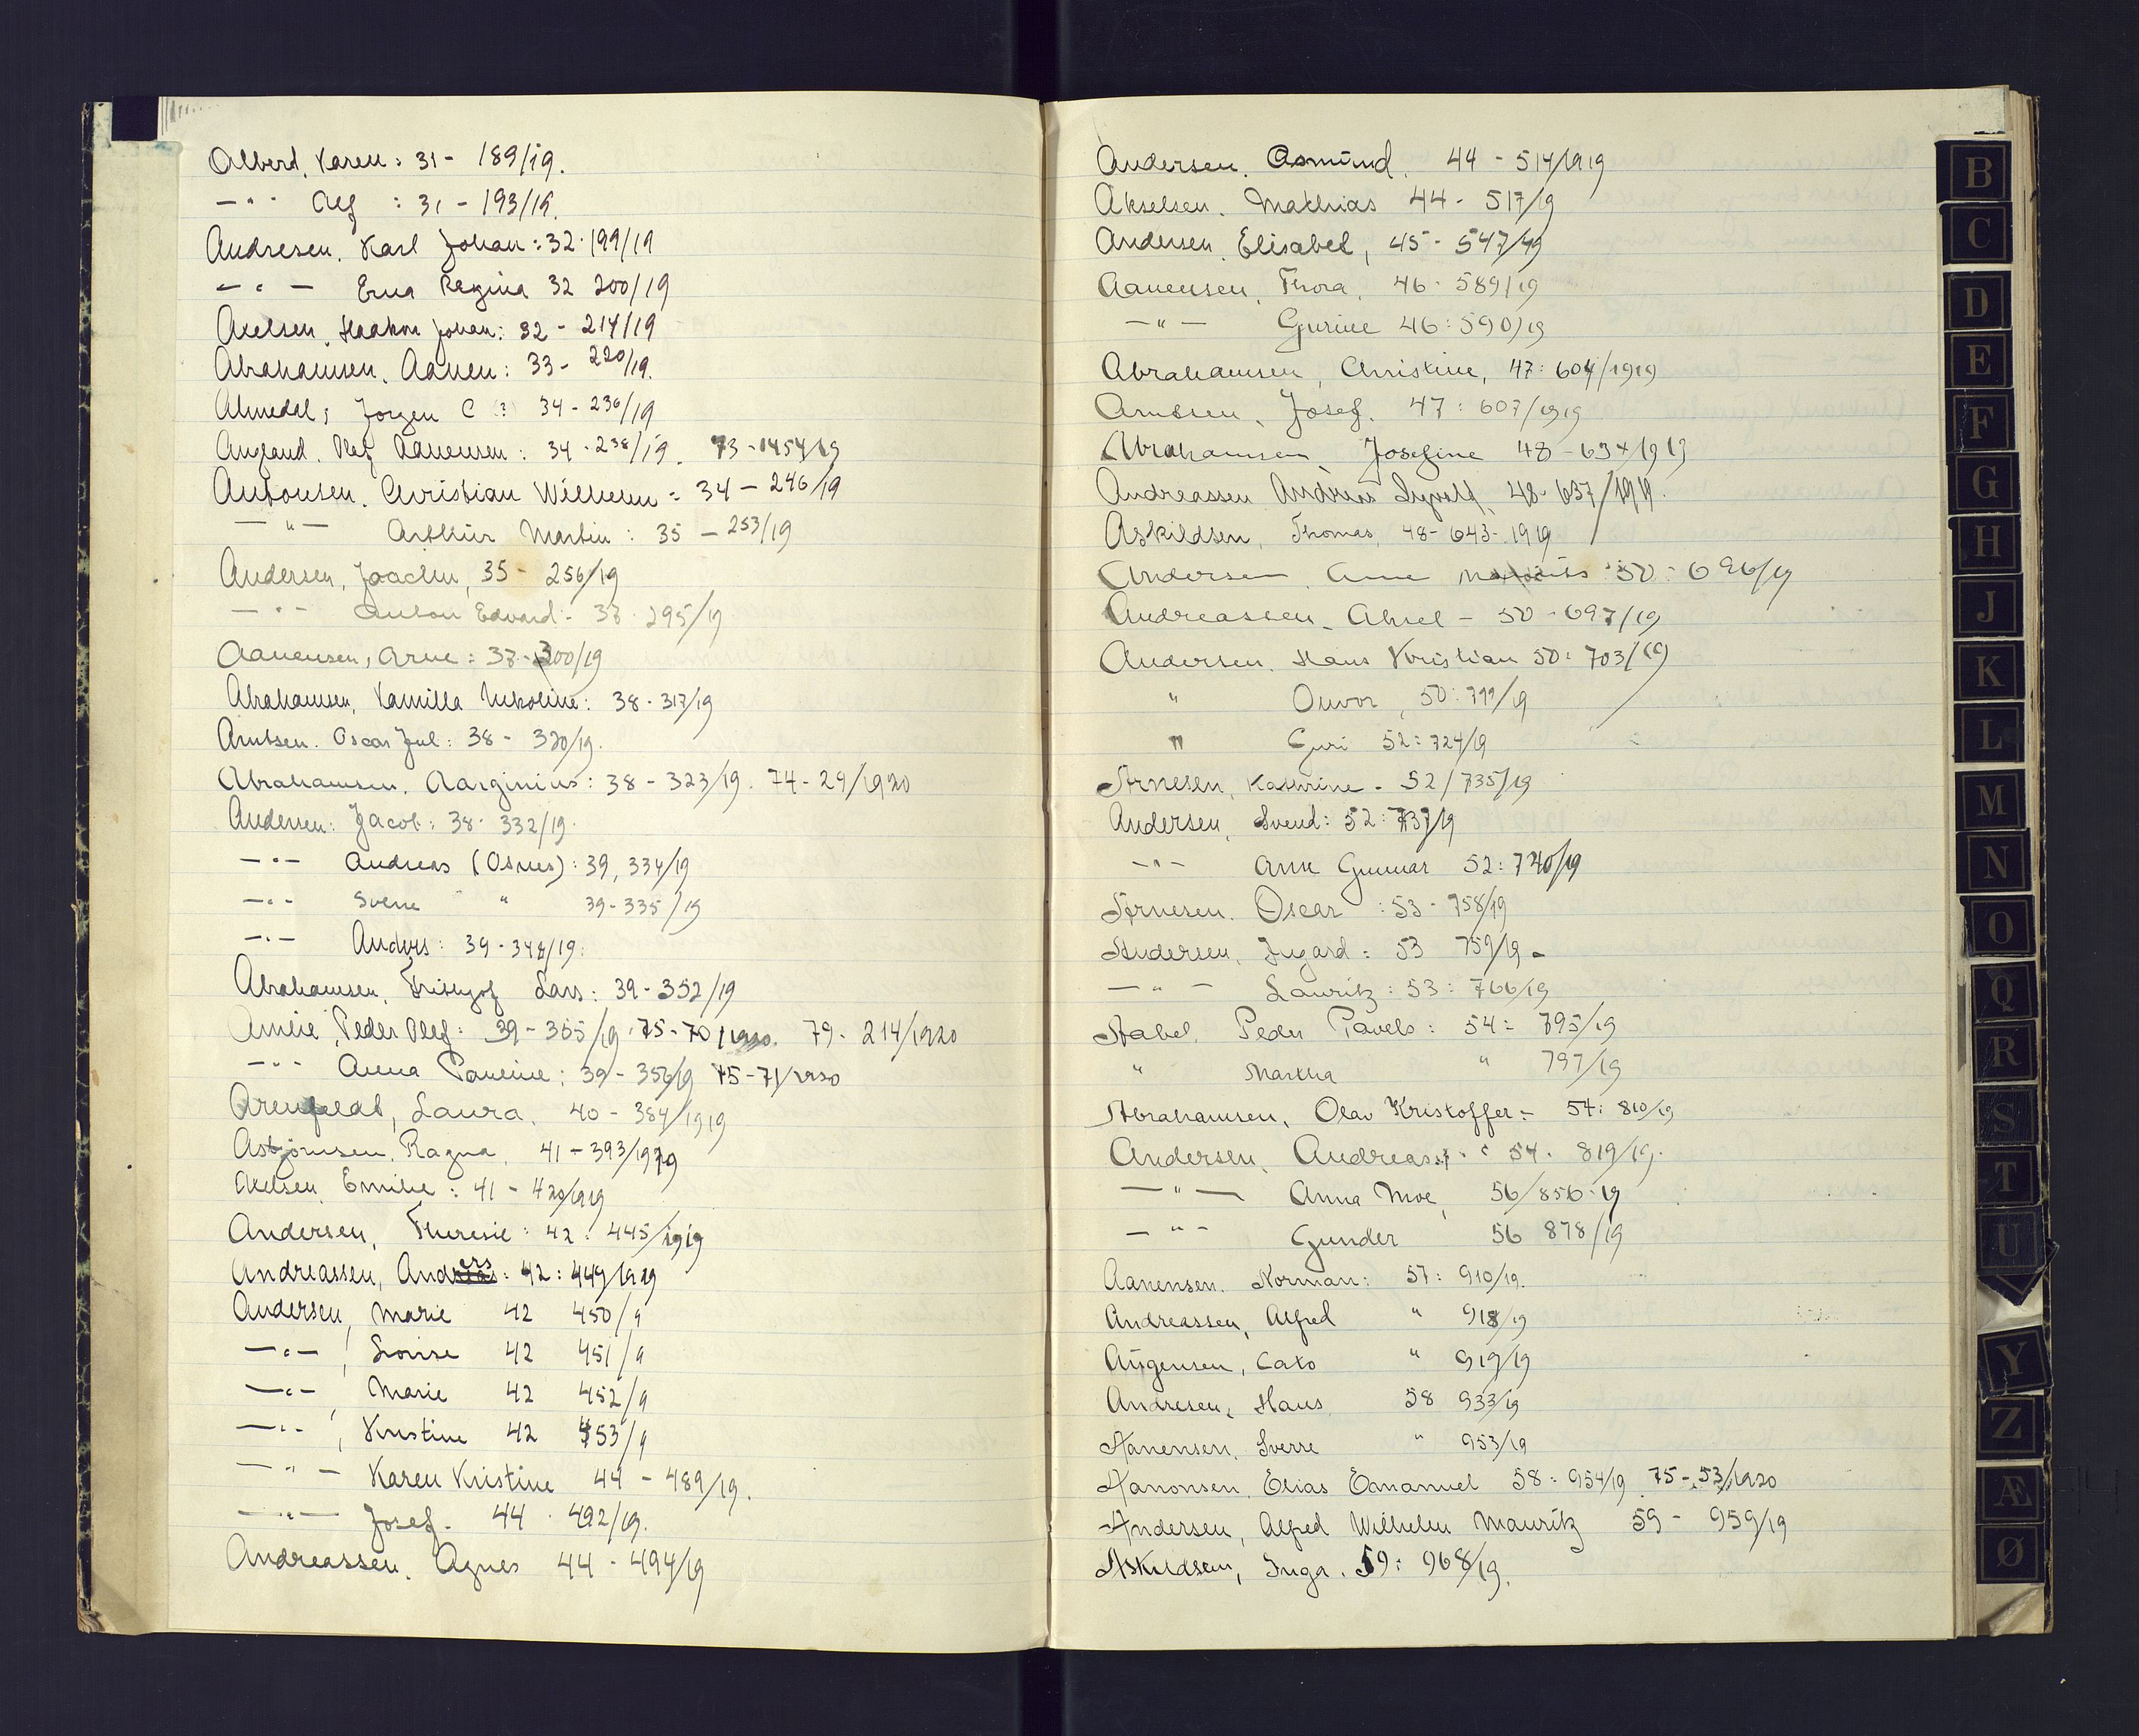 Alberd, Karen: 31 - 189/19.
-"- Alf : 31 - 193/19.
Andresen, Karl Johan: 32 - 199/19
- " - Erna Regina 32 200/19
Axelsen, Haakon Johan: 32 - 214/19
Abrahamsen, Aanen: 33 - 220/19.
Almedal, Jørgen C (?) 34 - 236/19
Augland, Olaf Aanensen: 34 - 238/19. 73 - 1454/19
Antonsen, Christian Wilhelm = 34 - 246/19
- " - Arthur Martin: 35 - 253/19
Andersen, Joachim, 35 - 256/19
- " - Anton Edvard: 37 - 295/19
Aanensen, Arne: 37 - 300/19
Abrahamsen, Kamilla Nikoline: 38 - 317/19
Arntsen, Oscar Jul: 38 - 320/19.
Abrahamsen, Aarginius: 38 - 323/19. 74 - 29/1920
Andersen: Jacob: 38 - 332/19.
- " - Andreas (Osnes): 39, 334/19
- " - Sverre " 39 - 335/19
- " - Anders: 39 - 348/19.
Abrahamsen, Frithjof Lars: 39 - 352/19
Amlie, Peder Olaf: 39 - 355/19. 75 - 70/1920. 79 - 214/1920
- " - Anna Pauline: 39 - 356/19 75 - 71/1920
Arenfeldt, Laura, 40 - 384/1919
Asbjörnsen, Ragna, 41 - 393/1919
Axelsen, Emilie: 41 - 420/1919
Andersen, Theresie: 42: 445/1919
Andreassen, Anders: 42: 449/1919
Andersen, Marie 42 450/9
- " - , Lovise 42 451/9
- " - , Marie 42 452/9
- " - , Kristine 42 453/9
- " - Karen Kristine 44 - 489/19.
- " - Josef. 44 - 492/19.
Andreassen, Agnes 44 - 494/19
Andersen, Asmund, 44 - 514/1919
Akselsen, Mathias 44 - 517/19
Andersen, Elisabet, 45 - 547/19
Aanensen, Thora, 46 - 589/19
- " - Gurine 46: 590/19
Abrahamsen, Christine, 47: 604/1919
Arntsen, Josef. 47: 607/1919
Abrahamsen, Josefine 48 - 634/1919
Andreassen Andreas 48 - 637/1919.
Askildsen, Thomas, 48 - 643 - 1919
Andersen, Arne 50: 696/19
Andreassen, Aksel - 50 - 697/19
Andersen, Hans Kristian 50: 703/19
" Ouvor, 50: 711/19
" Guri 52: 724/19
Arnesen, Kathrine - 52/735/19
Andersen, Svend: 52: 737/19
- " - Arne Gunnar 52: 740/19
Arnesen, Oscar : 53 - 758/19
Andersen, Ingard: 53 759/19 -
- " - Lauritz: 53: 766/19
Aabel, Peder Pavels: 54: 795/19
" Martha " 797/19
Abrahamsen, Olav Kristoffer: 54: 810/19
Andersen, Andreas 54. 819/19.
- " - Anna Moe, 56/856 - 19
- " - Gunder 56 878/19
Aanensen, Norman: 57: 910/19.
Andreassen, Alfred " 918/19
Augensen, Cato " 919/19
Andresen, Hans 58 933/19
Aanensen, Sverre " 953/19
Aanonsen, Elias Emanuel 58: 954/19. 75 - 53/1920
Andersen, Alfred Wilhelm Mauritz 59 - 959/19
Askildsen, Inga. 59: 968/19.
B
C
D
E
F
G
H
J
K
L
M
N
O
Q
R
S
T
U
Y
Z
Æ
Ø